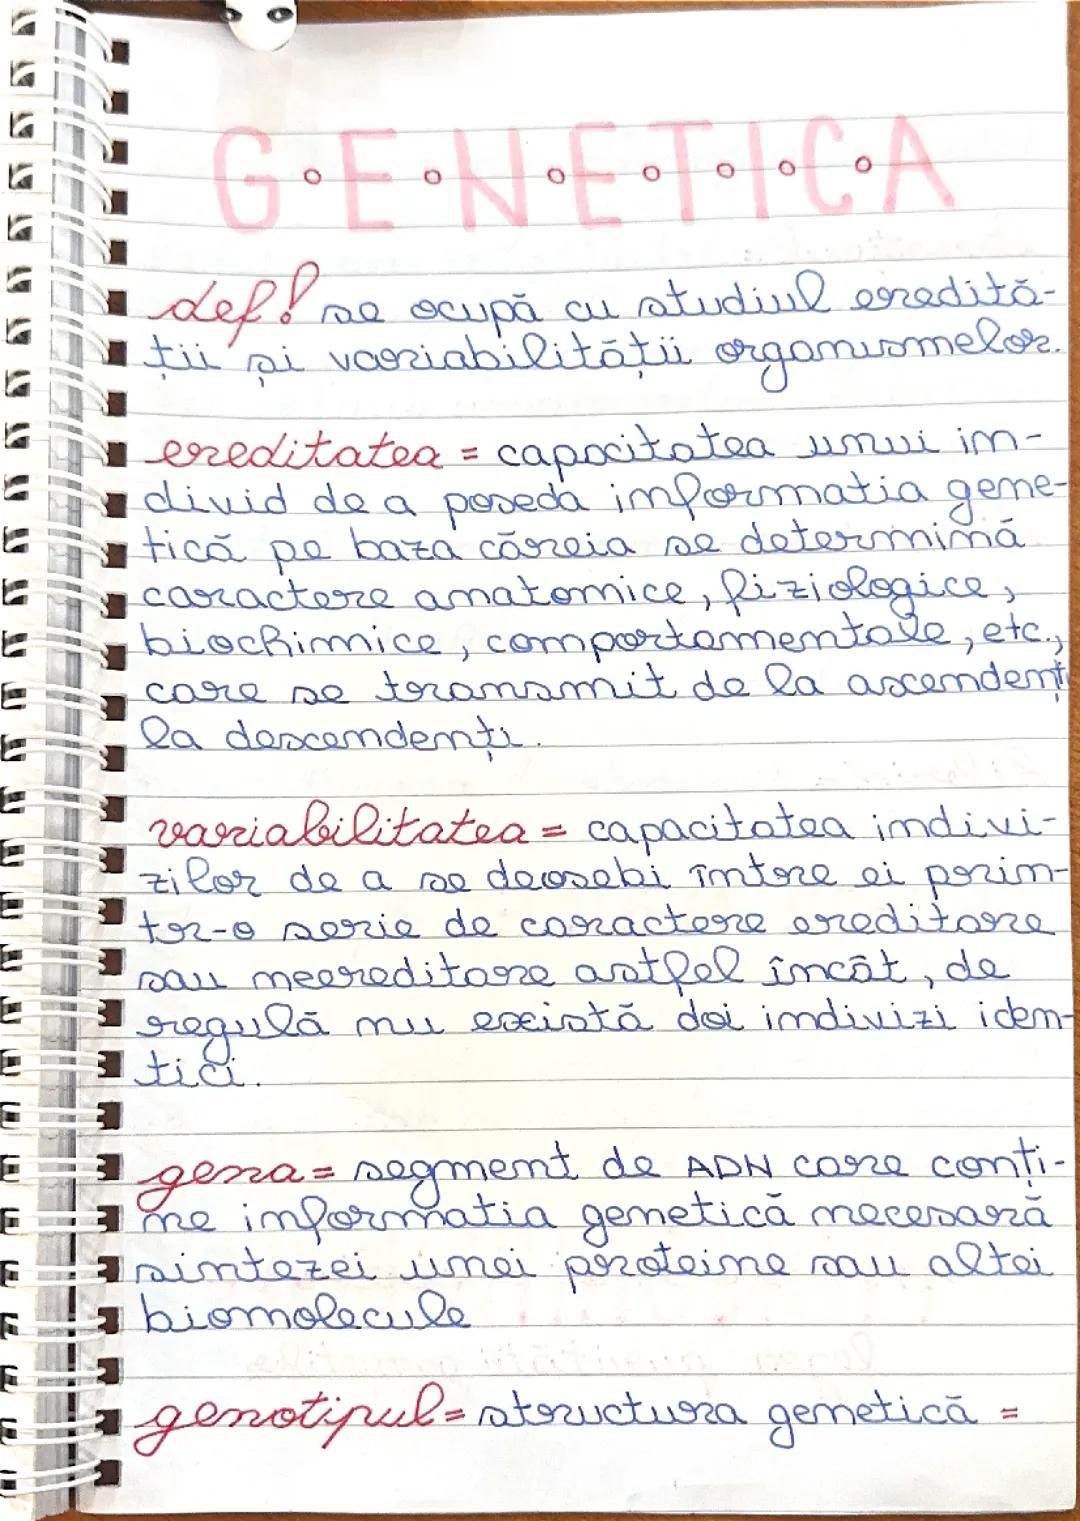 G.E.N.E.T.I.C.A
def! se ocupă cu studiul eredită-
ții și variabilității organismelor.
ereditatea = capacitatea unui in-
divid de a poseda informatia gene-
tică pe baza căreia se determină
caractere anatomice, fiziologice,
biochimice, comportamentale, etc.,
care se transmit de la ascendenți
la descendenți.
variabilitatea = capacitatea indivi-
zilor de a se deosebi între ei prin-
tr-o serie de caractere ereditare
sau neereditare astfel încât, de
regulă nu există doi indivizi iden-
tici.
gena = segment de ADN care conți-
ne informatia genetică necesară
sintezei unei proteine sau altei
biomolecule
genotipul = structura genetică =